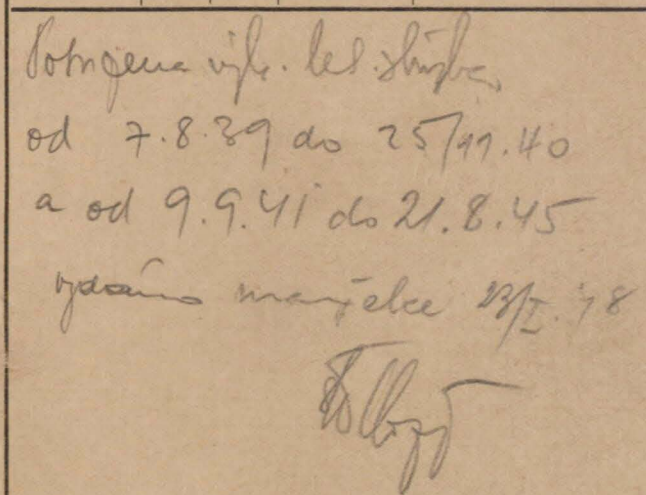 Potvrzena výk. let. služba,
od 7.8.39 do 25/11.40
a od 9.9.41 do 21.8.45
vydáno manželce 23/I.48